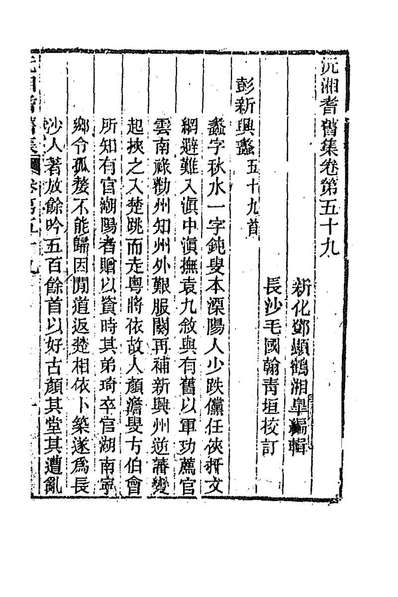 沅湘耆舊集卷第五十九
新化鄧顯鶴湘皐編輯
長沙毛國翰青垣校訂
彭新興蠡五十九首
蠡字秋水一字鈍叟本溧陽人少跌儻任俠扞文
網避難入滇中滇撫袁九敘與有舊以軍功薦官
雲南祿勸州知州外艱服闋再補新興州逆藩變
起挾之入楚跳而走粵將依故人顏澹叟方伯會
所知有官湖陽者贈以資時其弟琦卒官湖南寧
鄉令孤嫠不能歸因閒道返楚相依卜築遂爲長
沙人著放餘吟五百餘首以好古顏其堂其遭亂
沅湘耆舊集 卷第五十九